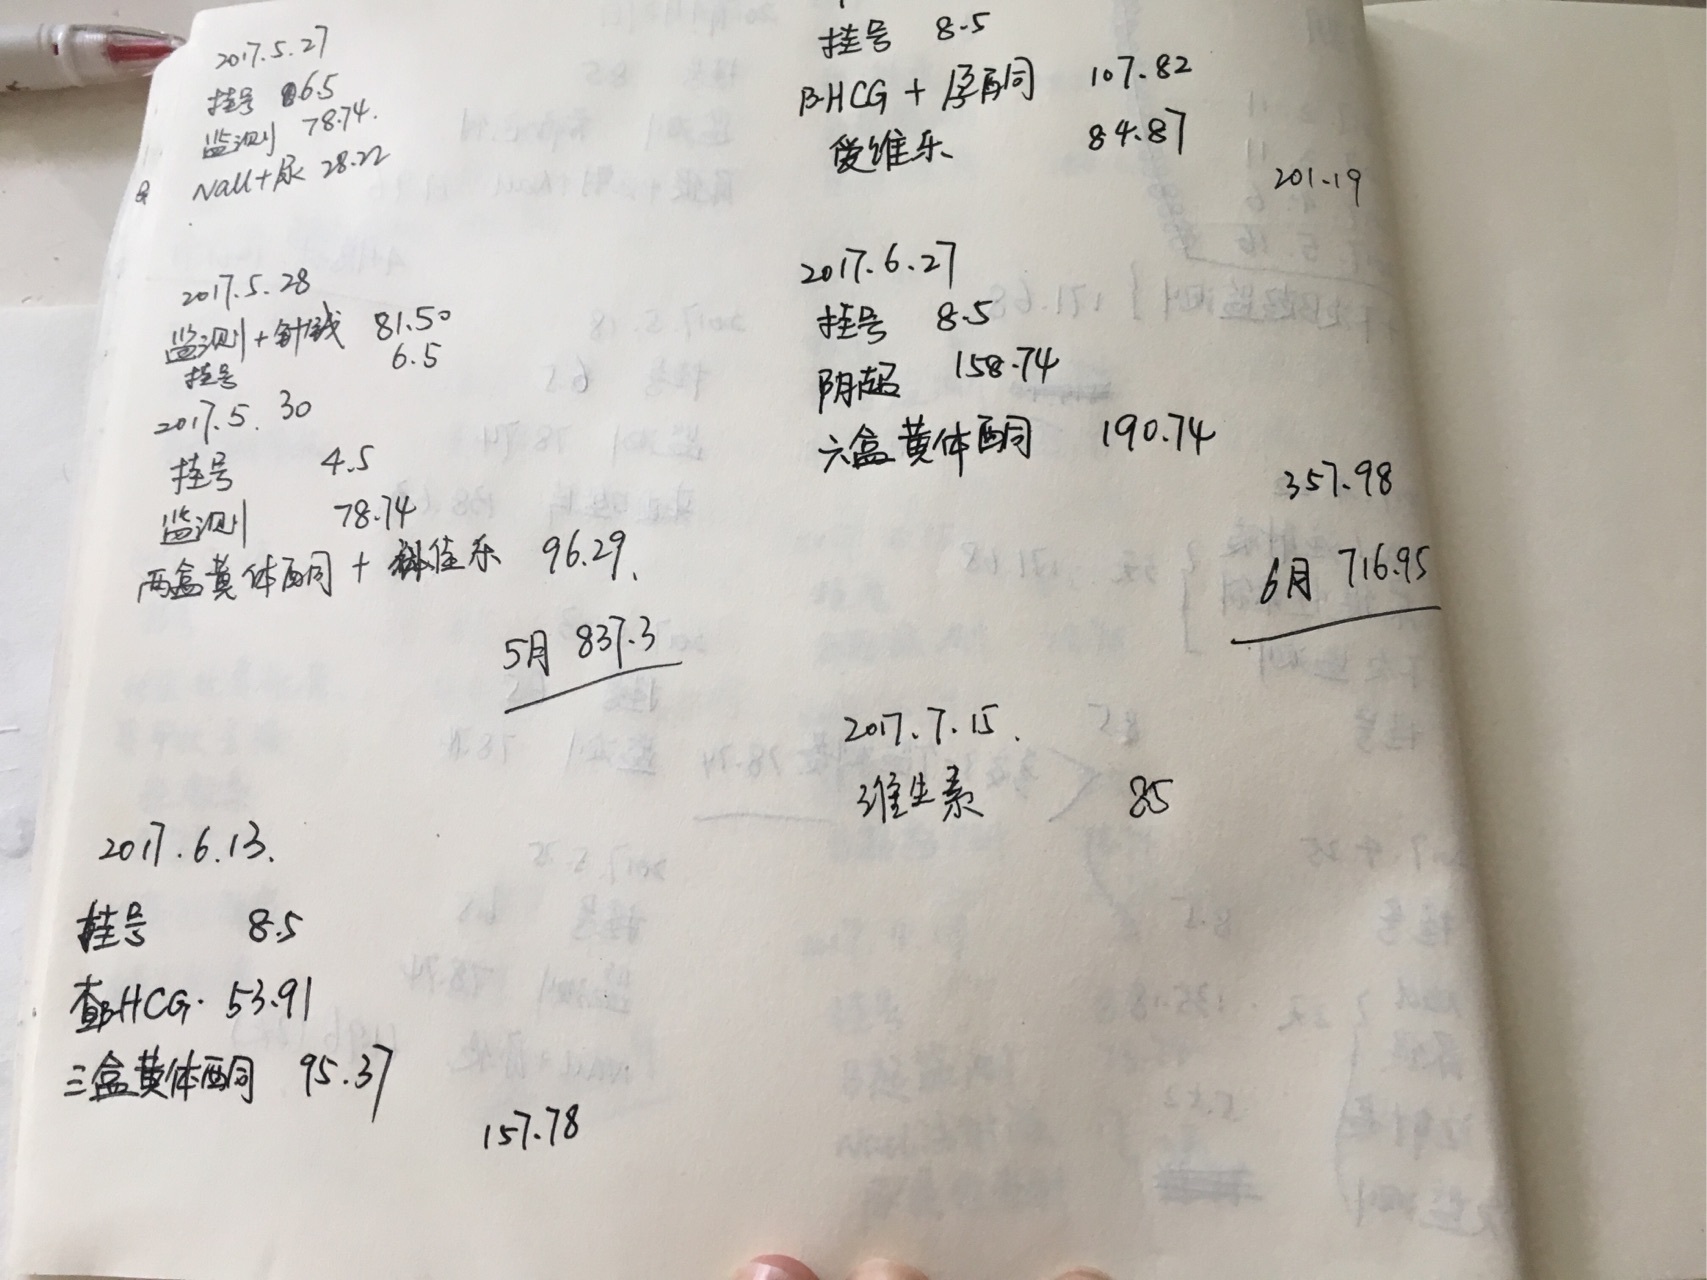 2017.5.27
挂号 6.5
监测 78.74.
Nacl+尿 28.22
2017.5.28
监测+针钱 81.50
挂号 6.5
2017.5.30
挂号 4.5
监测 78.74
两盒黄体酮+ 佳乐 96.29.
5月 837.3
2017.6.13.
挂号 8.5
查β-HCG. 53.91
三盒黄体酮 95.37
157.78
挂号 8.5
β-HCG + 孕酮 107.82
爱维乐 84.87
201.19
2017.6.27
挂号 8.5
阴超 158.74
六盒黄体酮 190.74
357.98
6月 716.95
2017.7.15.
维生素 85